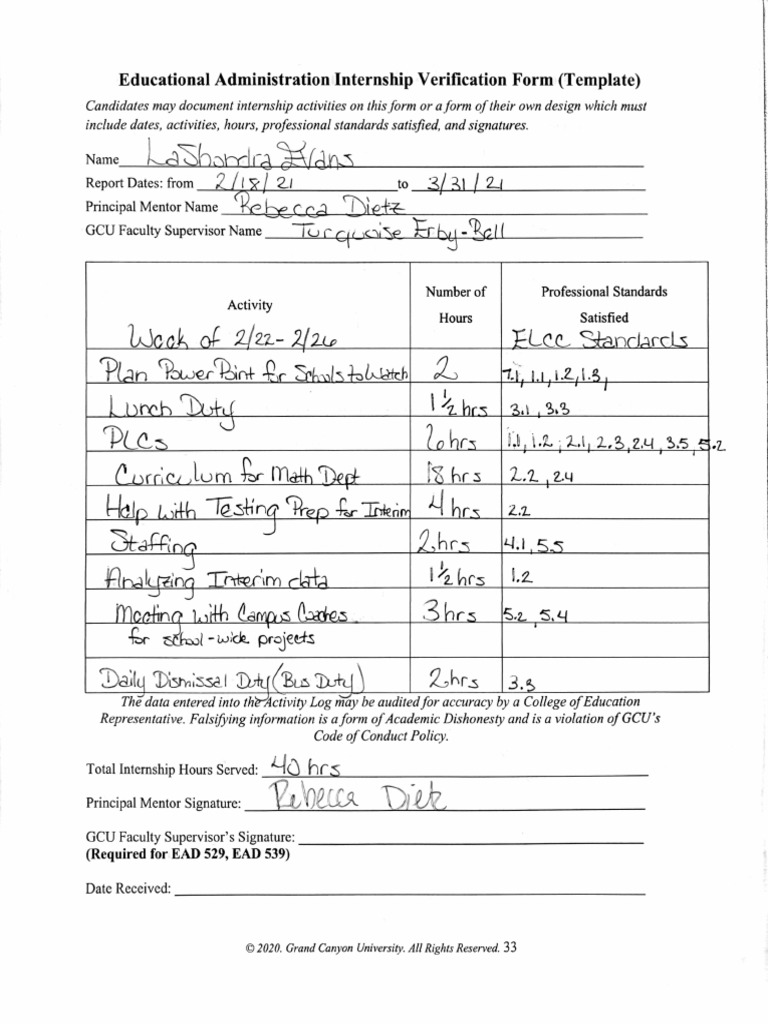 Educational Administration Internship Verification Form (Template)
Candidates may document internship activities on this form or a form of their own design which must
include dates, activities, hours, professional standards satisfied, and signatures.
Name LaShondra Evans
Report Dates: from 2/18/21 to 3/31/21
Principal Mentor Name Rebecca Dietz
GCU Faculty Supervisor Name Turquoise Erby-Bell
Activity Number of Hours Professional Standards Satisfied
Week of 2/22-2/26 ELCC Standards
Plan PowerPoint for Schools to Watch 2 7.1, 1.1, 1.2, 1.3,
Lunch Duty 1 1/2 hrs 3.1, 3.3
PLCs 6 hrs 1.1, 1.2, 2.1, 2.3, 2.4, 3.5, 5.2
Curriculum for Math Dept 18 hrs 2.2, 2.4
Help with Testing Prep for Interim 4 hrs 2.2
Staffing 2 hrs 4.1, 5.5
Analyzing Interim data 1 1/2 hrs 1.2
Meeting with Campus Coaches 3 hrs 5.2, 5.4
for school-wide projects
Daily Dismissal Duty (Bus Duty) 2 hrs 3.3
The data entered into the Activity Log may be audited for accuracy by a College of Education
Representative. Falsifying information is a form of Academic Dishonesty and is a violation of GCU's
Code of Conduct Policy.
Total Internship Hours Served: 40 hrs
Principal Mentor Signature: Rebecca Dietz
GCU Faculty Supervisor's Signature:
(Required for EAD 529, EAD 539)
Date Received:
© 2020. Grand Canyon University. All Rights Reserved. 33